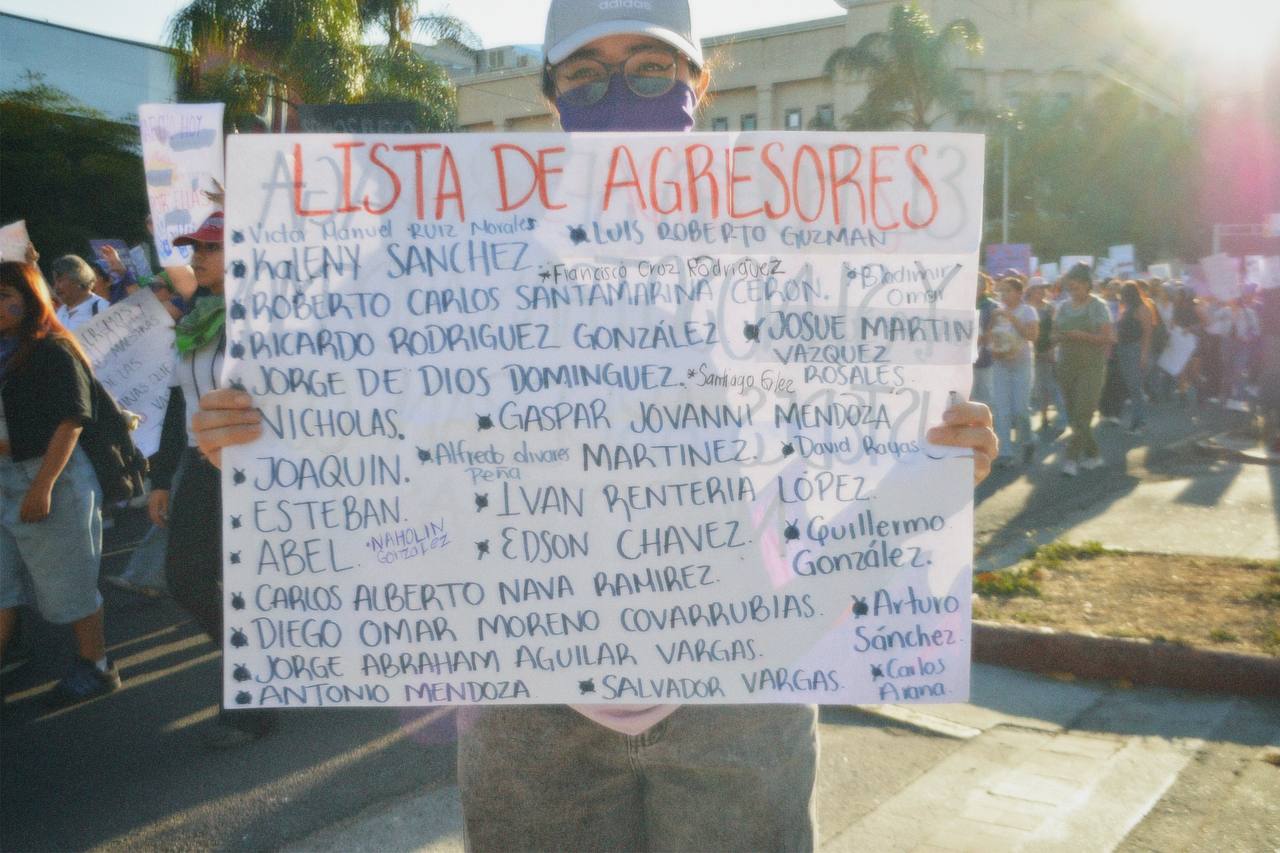 adidas
LISTA DE AGRESORES
Victor Manuel RUIZ Morales
LUIS ROBERTO GUZMAN
KALENY SANCHEZ
*Francisco Cruz Rodriguez
*Bladimir
Omar
ROBERTO CARLOS SANTAMARINA CERON.
RICARDO RODRIGUEZ GONZÁLEZ
JOSUE MARTIN
VAZQUEZ
ROSALES.
JORGE DE DIOS DOMINGUEZ.
*Santiago
NICHOLAS.
GASPAR JOVANNI MENDOZA
MARTINEZ.
JOAQUIN.
Alfredo olvares
Peña
David Rayas
ESTEBAN.
IVAN RENTERIA LÓPEZ.
ABEL.
*NAHOLIN
González
EDSON CHAVEZ.
Guillermo
González.
CARLOS ALBERTO NAVA RAMIREZ.
DIEGO OMAR MORENO COVARRUBIAS.
Arturo
Sánchez.
JORGE ABRAHAM AGUILAR VARGAS.
ANTONIO MENDOZA
SALVADOR VARGAS.
Carlos
Arana.